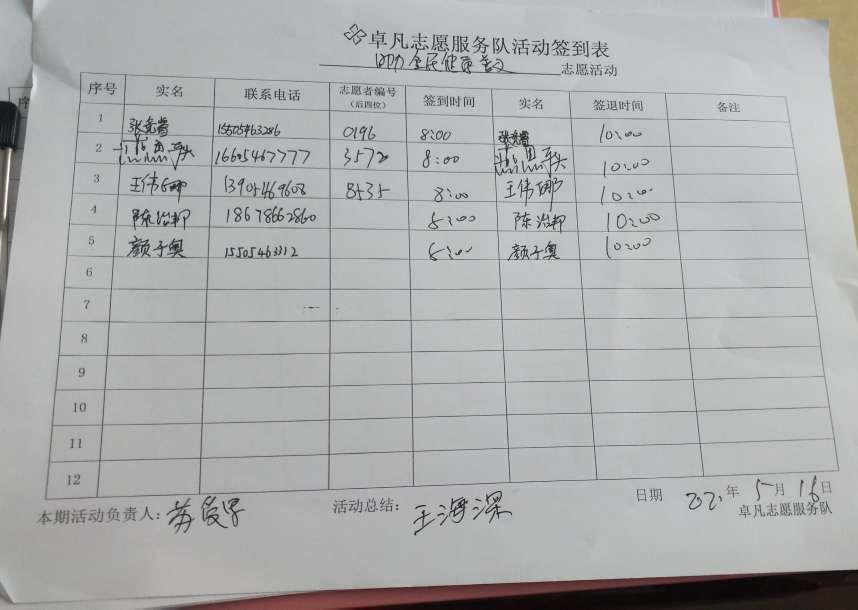 卓凡志愿服务队活动签到表
助力全民健康义 志愿活动
序号 实名 联系电话 志愿者编号（后四位） 签到时间 实名 签退时间 备注
1 15505463286 0196 8:00 10:00
2 16605467777 3572 8:00 10:00
3 王伟娜 13905469608 8535 8:00 王伟娜 10:00
4 陈治邦 18678662860 8:00 陈治邦 10:00
5 颜子奥 15505463312 8:00 颜子奥 10:00
6
7
8
9
10
11
12
本期活动负责人： 活动总结：王海深 日期 2021年5月16日
卓凡志愿服务队